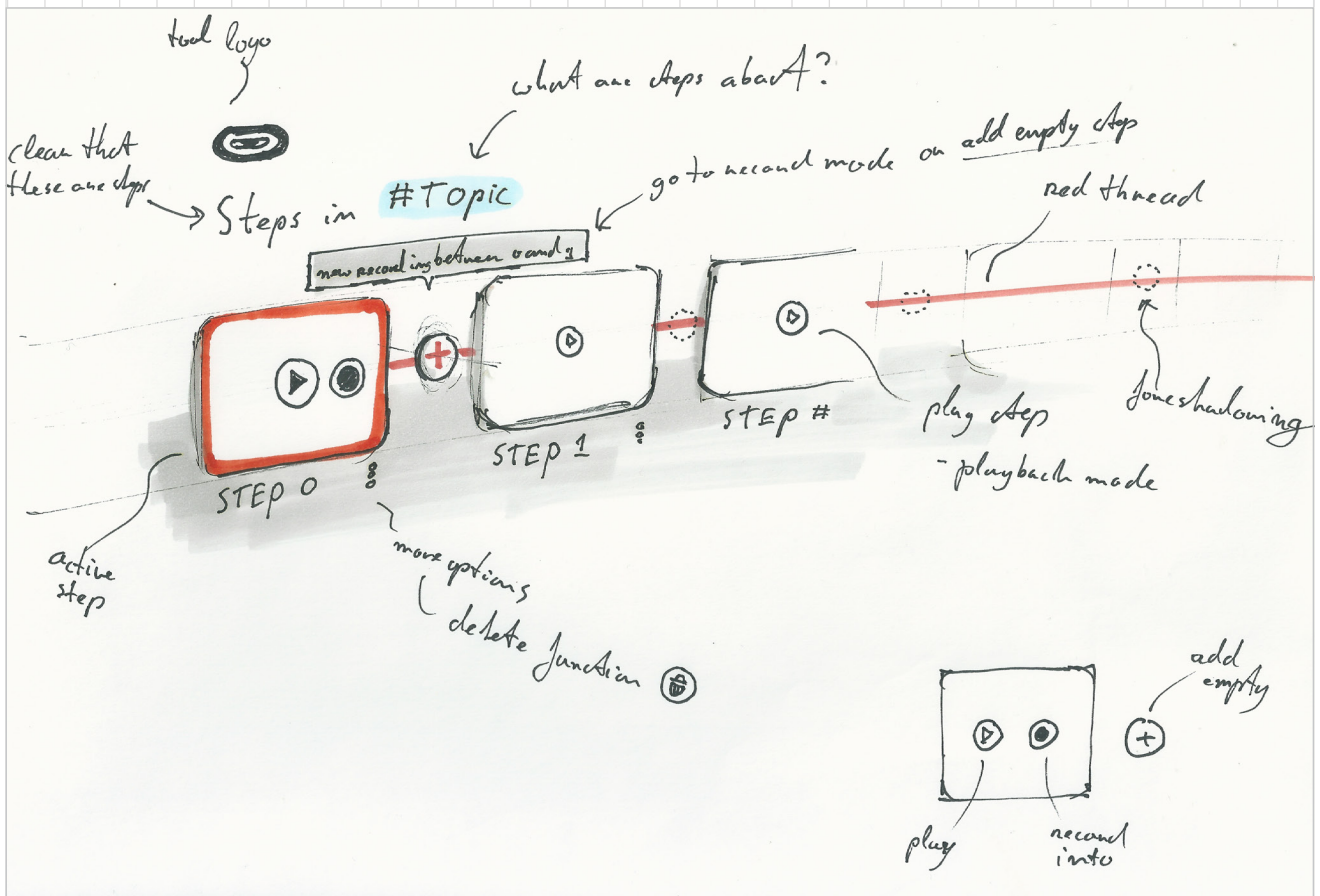 tool logo
what are steps about?
clear that
these are steps
Steps in #Topic
go to record mode on add empty step
red thread
new recording between 0 and 1
STEP 0
STEP 1
STEP #
play step
- playback mode
foreshadowing
active
step
more options
delete function
add
empty
play
record
into